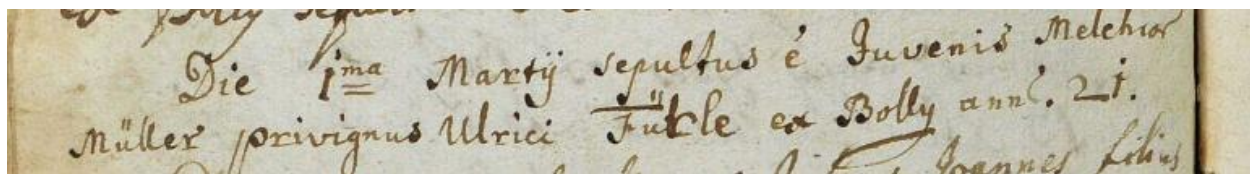 ex Bolly sepult
Die 1ma Martÿ sepultus é Juvenis Melchior
Müller privignus Ulrici Fükle ex Bolly ann. 21.
Joannes filius